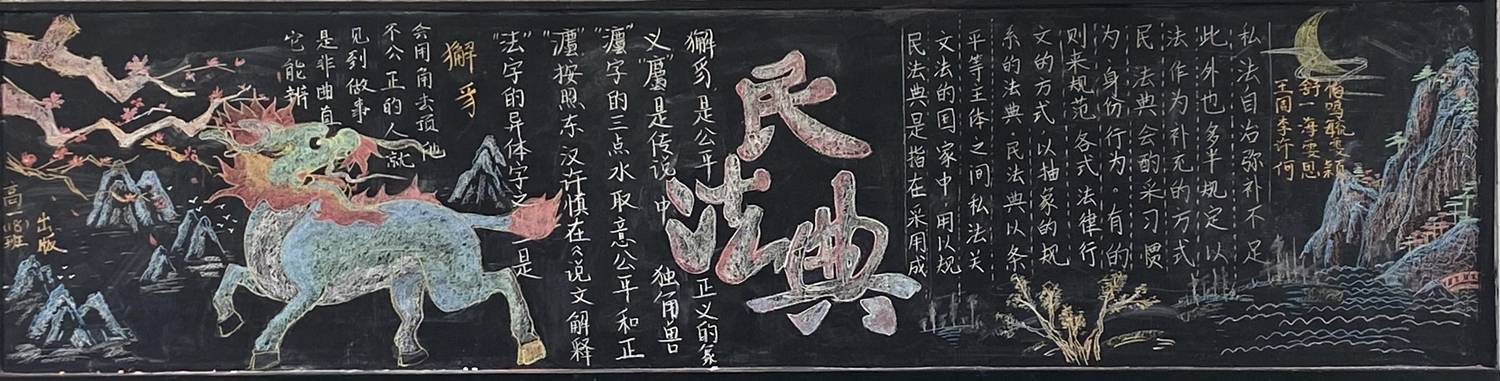 高一(18)班
出版
它能辨
是非曲直
见到做事
不公正的人就
会用角去顶他
獬豸
"法"字的异体字之一是
"灋"按照东汉许慎在《说文解释
"灋"字的三点水取意公平和正
义"廌"是传说中独角兽
獬豸是公平正义的象
民法典
民法典是指在采用成
文法的国家中用以规
平等主体之间私法关
系的法典.民法典以条
文的方式以抽象的规
则来规范各式法律行
为身份行为.有的
民法典会酌采习惯
法作为补充的方式
此外也多半规定以
私法自治弥补不足
王周李许何
舒一海雲恩